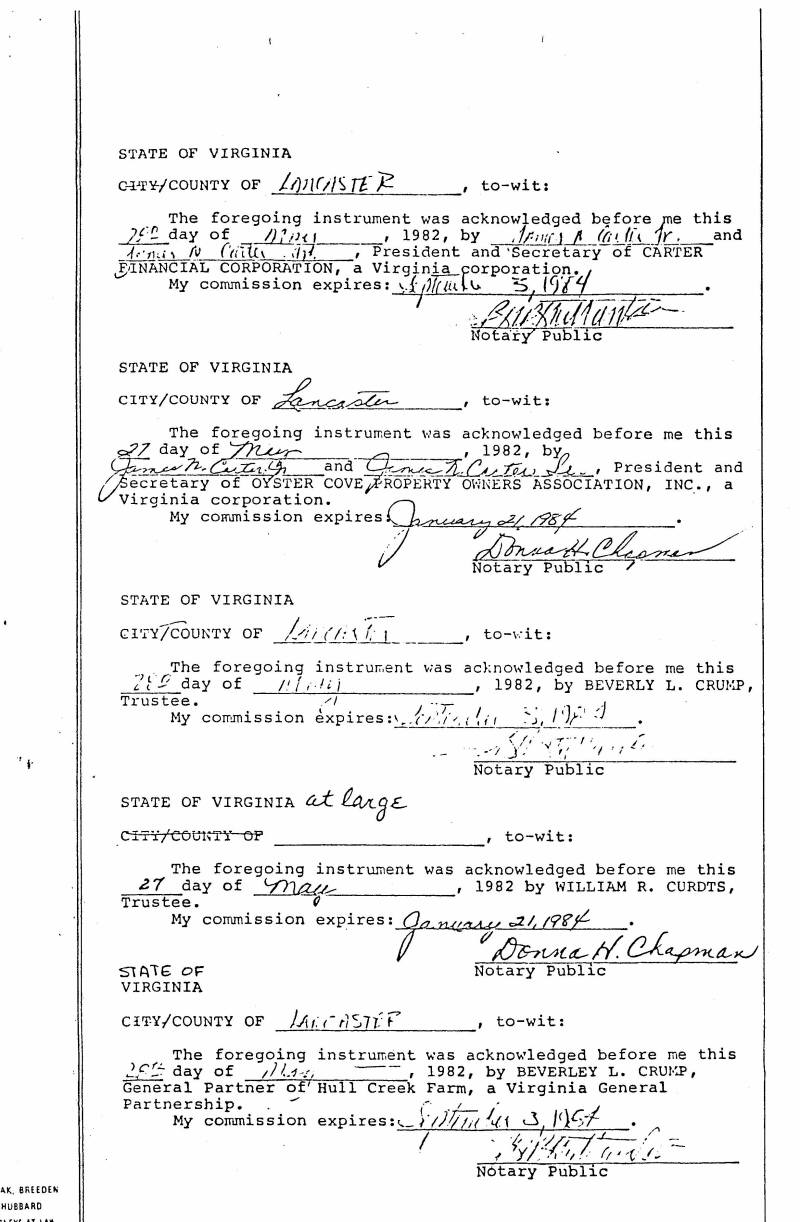 STATE OF VIRGINIA
CITY/COUNTY OF LANCASTER, to-wit:
The foregoing instrument was acknowledged before me this
day of, 1982, by and
, President and Secretary of CARTER
FINANCIAL CORPORATION, a Virginia corporation.
My commission expires: September 3, 1984.
Notary Public
STATE OF VIRGINIA
CITY/COUNTY OF Lancaster, to-wit:
The foregoing instrument was acknowledged before me this
27 day of May, 1982, by
James N. Carter Jr and James N. Carter, Sr., President and
Secretary of OYSTER COVE PROPERTY OWNERS ASSOCIATION, INC., a
Virginia corporation.
My commission expires: January 21, 1984.
Donna H. Chapman
Notary Public
STATE OF VIRGINIA
CITY/COUNTY OF, to-wit:
The foregoing instrument was acknowledged before me this
day of, 1982, by BEVERLY L. CRUMP,
Trustee.
My commission expires:.
Notary Public
STATE OF VIRGINIA at large
CITY/COUNTY OF, to-wit:
The foregoing instrument was acknowledged before me this
27 day of May, 1982 by WILLIAM R. CURDTS,
Trustee.
My commission expires: January 21, 1984.
Donna H. Chapman
Notary Public
STATE OF
VIRGINIA
CITY/COUNTY OF LANCASTER, to-wit:
The foregoing instrument was acknowledged before me this
day of, 1982, by BEVERLEY L. CRUMP,
General Partner of Hull Creek Farm, a Virginia General
Partnership.
My commission expires: September 3, 1984.
Notary Public
AK, BREEDEN
HUBBARD